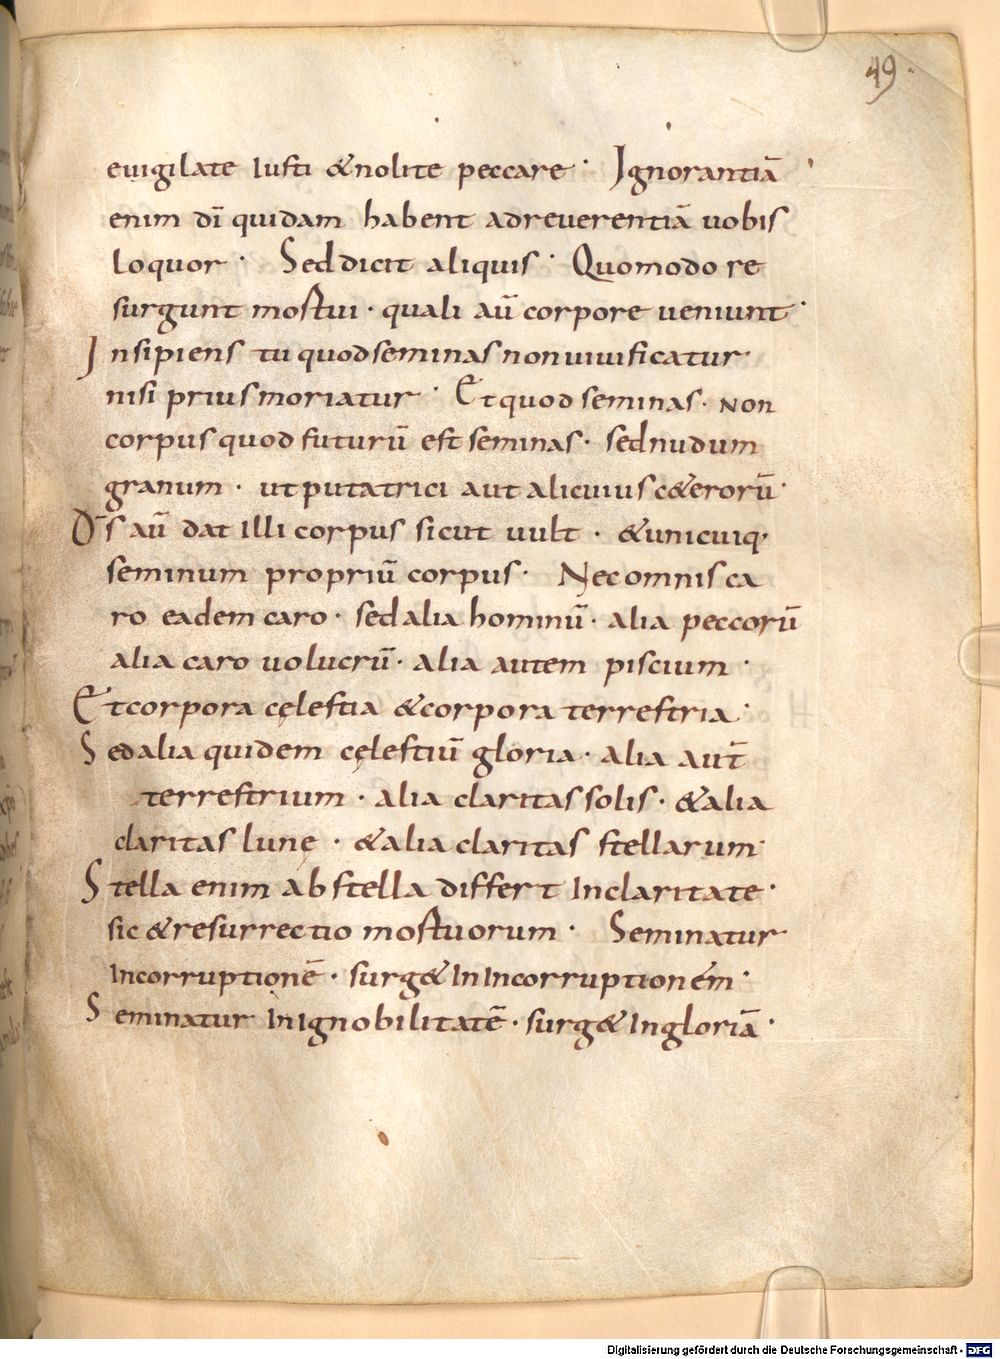 49.
euigilate Iusti &nolite peccare · Ignorantiā
enim dī quidam habent adreuerentiā uobis
loquor · Sed dicit aliquis · Quomodo re
surgunt mortui · quali aū corpore ueniunt ·
Insipiens tu quod seminas non uiuificatur
nisi prius moriatur · Et quod seminas · Non
corpus quod futurū est seminas · sed nudum
granum · ut puta trici aut alicuius c&erorū ·
D̄s aū dat illi corpus sicut uult · &unicuiq,
seminum propriū corpus · Nec omnis ca
ro eadem caro · sed alia hominū · alia peccorū
alia caro uolucrū · alia autem piscium ·
Et corpora cęlestia &corpora terrestria ·
Sed alia quidem cęlestiū gloria · alia aut̄
terrestrium · alia claritas solis · &alia
claritas lunę · &alia claritas stellarum
Stella enim ab stella differt Inclaritate ·
sic &resurrectio mortuorum · Seminatur
Incorruptionē · surg& In Incorruptionem ·
Seminatur In Ignobilitatē · surg& Ingloriā ·
Digitalisierung gefördert durch die Deutsche Forschungsgemeinschaft - DFG